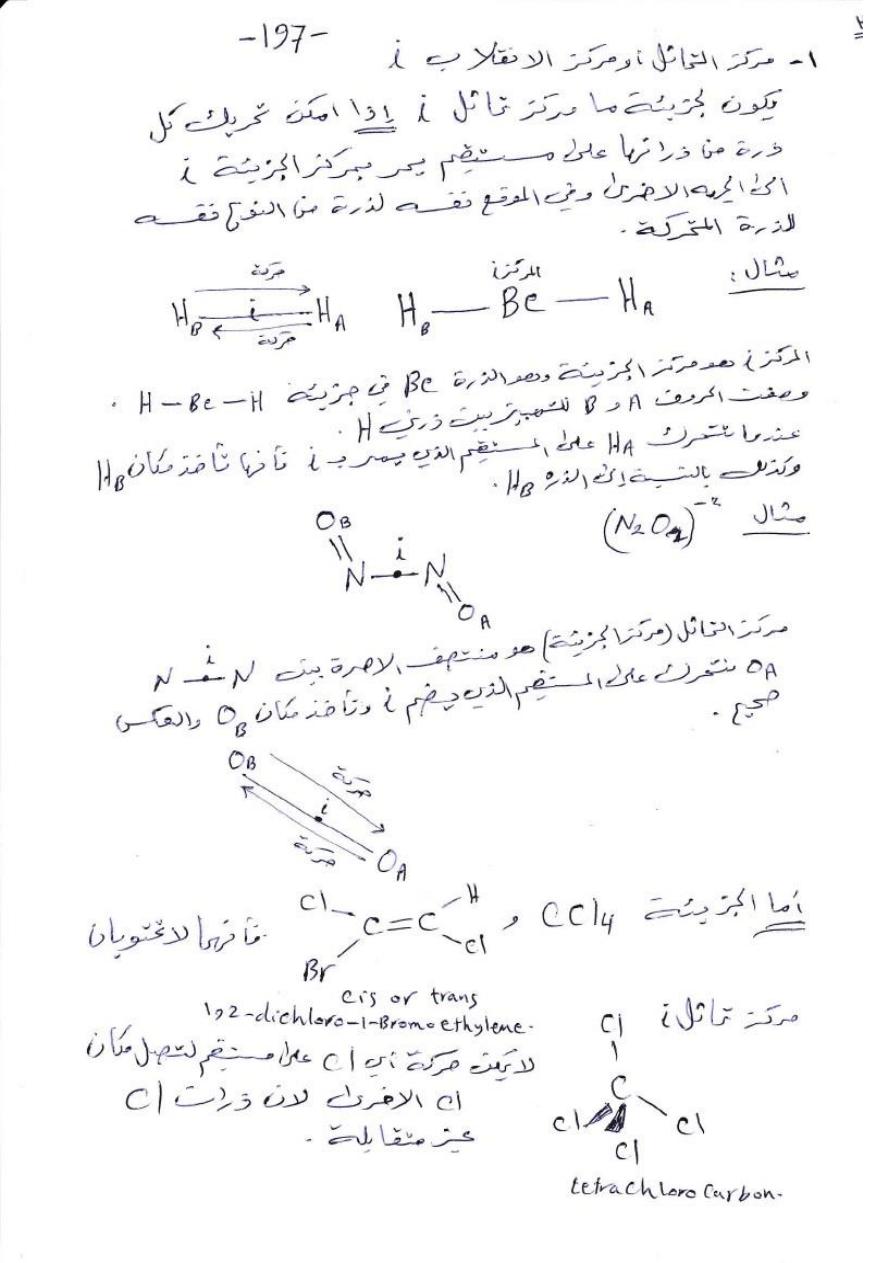 -197-
١- مركز التماثل أو مركز الانقلاب i
يكون لجزيئة ما مركز تماثل i إذا امكن تحريك كل
ذرة من ذراتها على مستقيم يمر بمركز الجزيئة i
الى الجهه الاخرى وفي الموقع نفسه لذرة من النوع نفسه
للذرة المتحركة .
مثال :
حركة
المركز i
H_B i H_A H_B — Be — H_A
حركة
المركز i هو مركز الجزيئة وهو الذرة Be في جزيئة H - Be - H .
وضعت الحروف A و B للتمييز بين ذرتي H .
عندما تتحرك H_A على المستقيم الذي يمر بـ i فأنها تأخذ مكان H_B
وكذلك بالنسبة إلى الذره H_B .
مثال (N2O2)^-2
O_B
i
N — N
O_A
مركز التماثل (مركز الجزيئة) هو منتصف الاصرة بين N i N
O_A تتحرك على المستقيم الذي يضم i وتأخذ مكان O_B والعكس
صحيح .
O_B
حركة
i
حركة
O_A
أما الجزيئة CCl4 و
Cl H
C = C
Br Cl
فأنهما لا تحتويان
مركز تماثل i
cis or trans
1,2-dichloro-1-Bromoethylene.
لا يمكن حركة أي Cl على مستقيم لتصل مكان
Cl الاخرى لان ذرات Cl
غير متقابلة .
Cl
C
Cl Cl
Cl
tetrachloro Carbon.